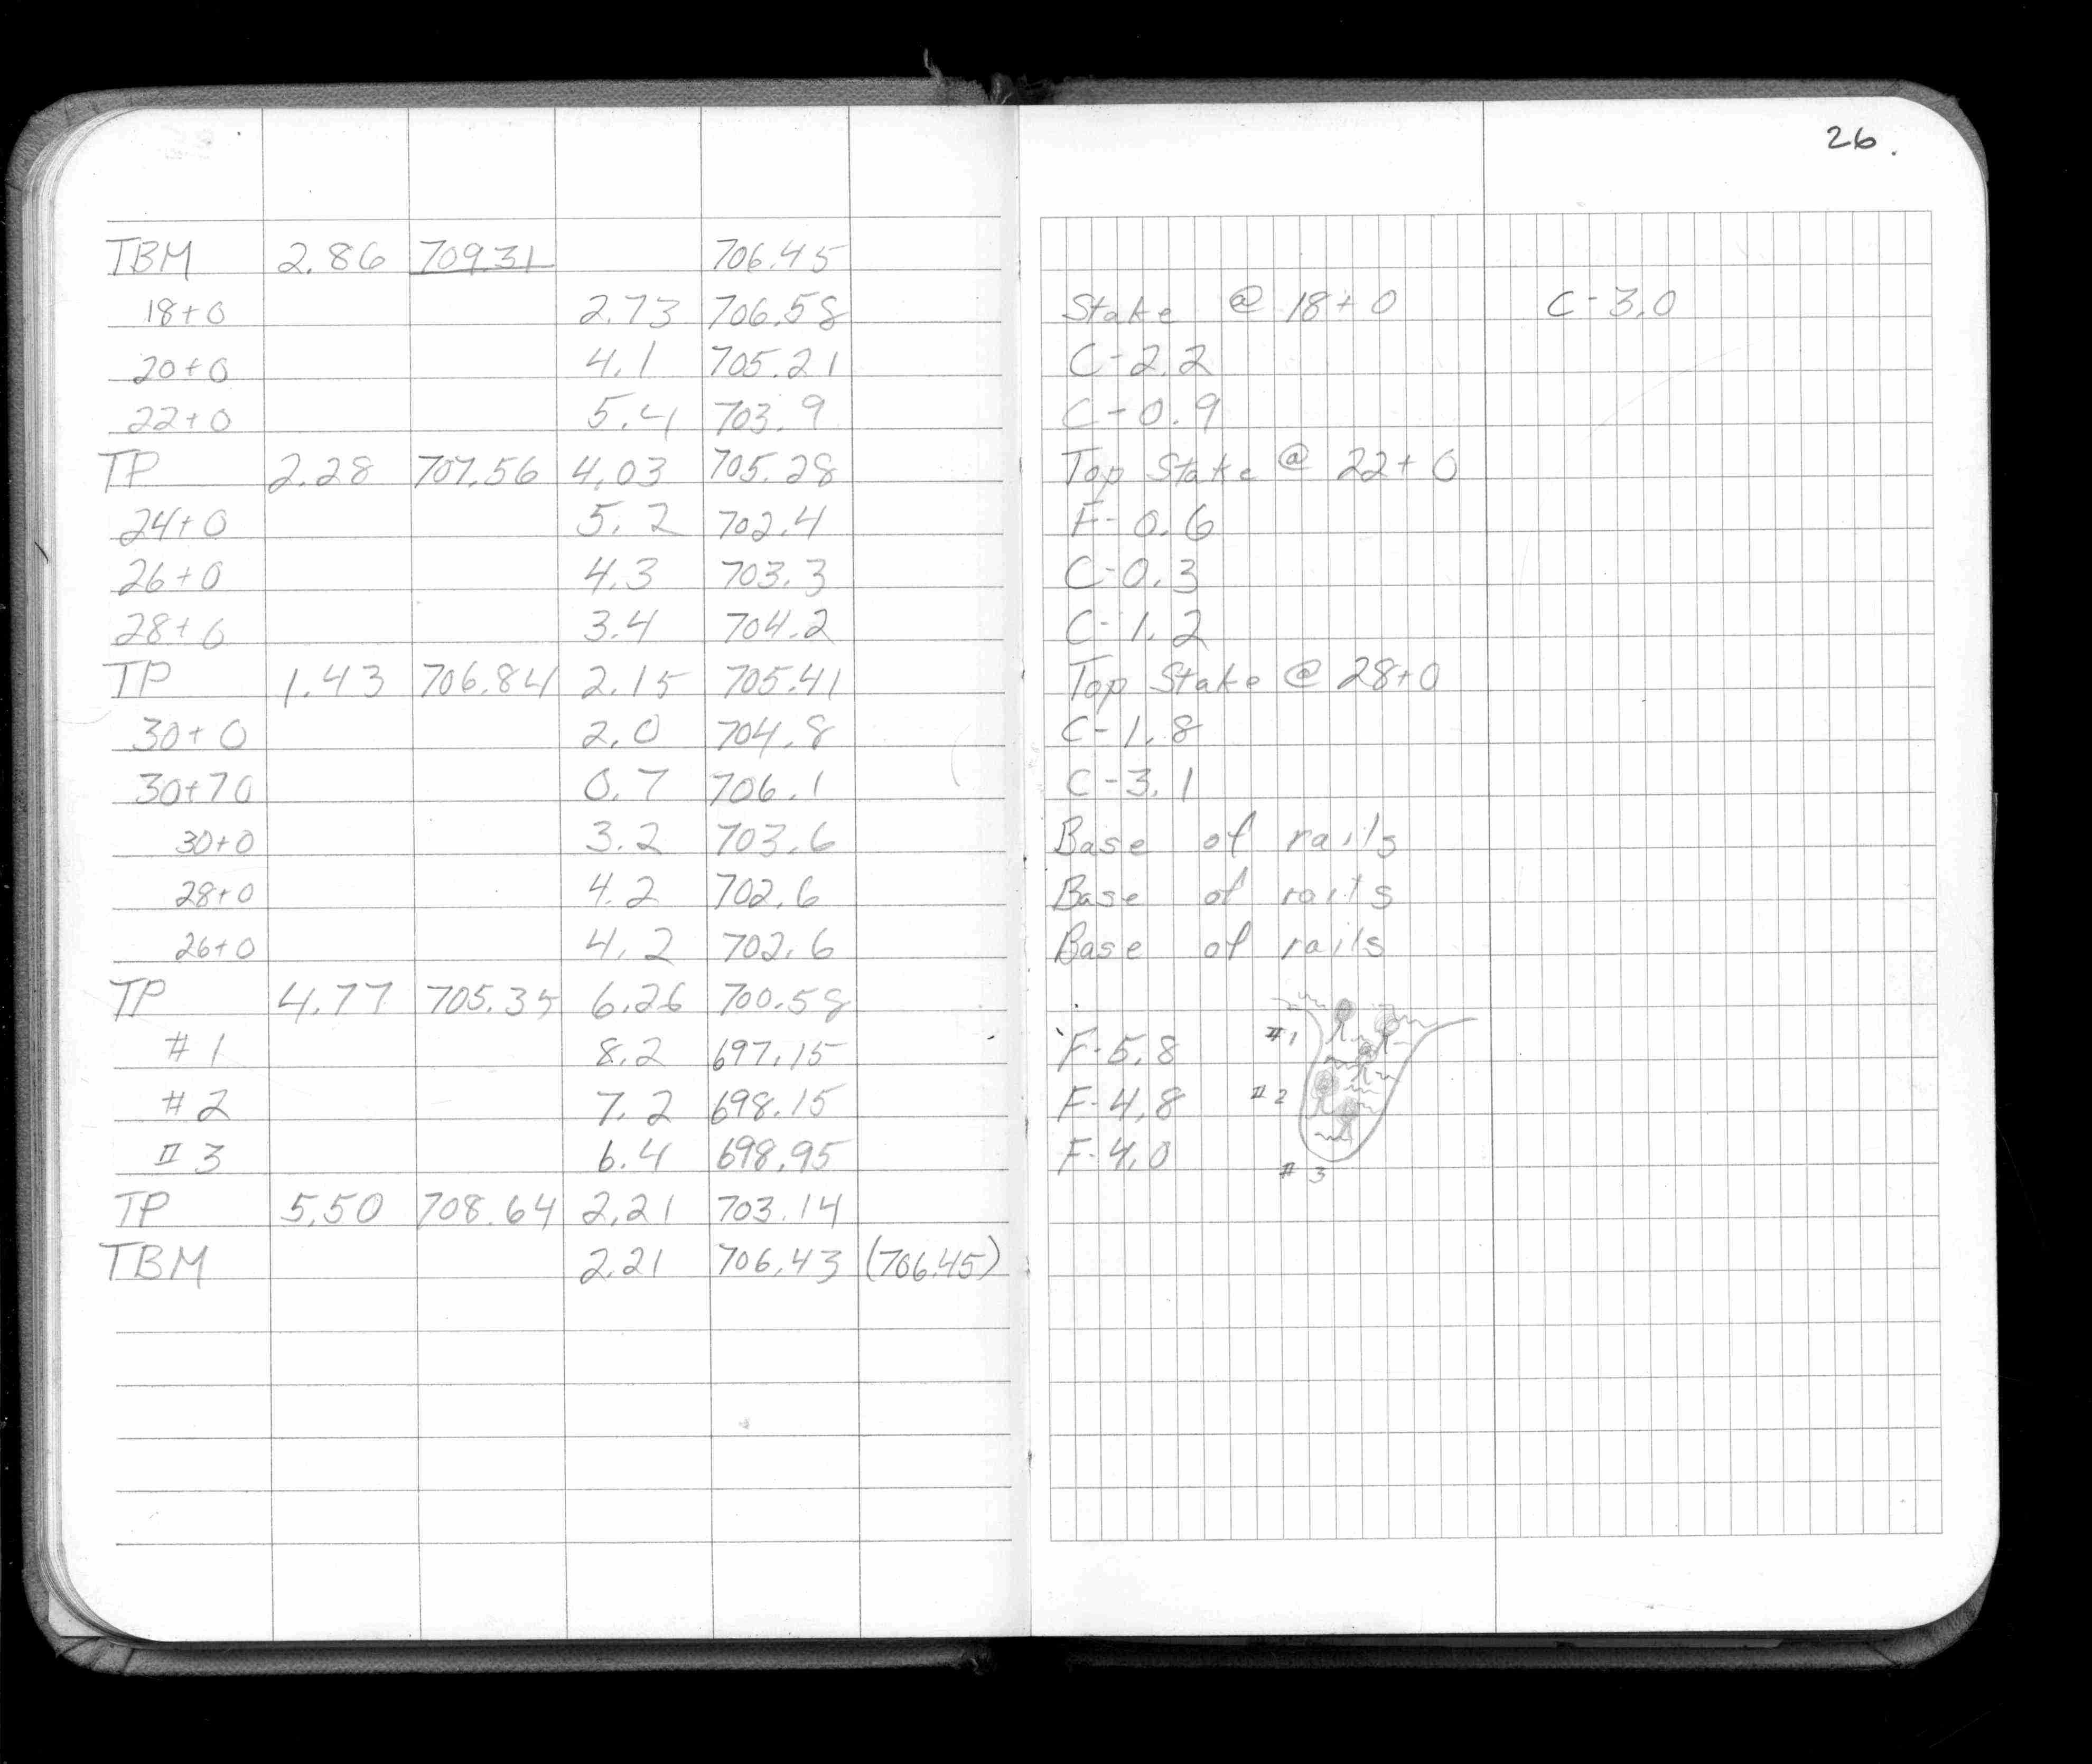 26.
TBM 2.86 709.31 706.45
18+0 2.73 706.58 Stake @ 18+0 C-3.0
20+0 4.1 705.21 C-2.2
22+0 5.4 703.9 C-0.9
TP 2.28 707.56 4.03 705.28 Top Stake @ 22+0
24+0 5.2 702.4 F-0.6
26+0 4.3 703.3 C-0.3
28+0 3.4 704.2 C-1.2
TP 1.43 706.84 2.15 705.41 Top Stake @ 28+0
30+0 2.0 704.8 C-1.8
30+70 0.7 706.1 C-3.1
30+0 3.2 703.6 Base of rails
28+0 4.2 702.6 Base of rails
26+0 4.2 702.6 Base of rails
TP 4.77 705.35 6.26 700.58
#1 8.2 697.15 F-5.8 #1
#2 7.2 698.15 F-4.8 #2
#3 6.4 698.95 F-4.0 #3
TP 5.50 708.64 2.21 703.14
TBM 2.21 706.43 (706.45)